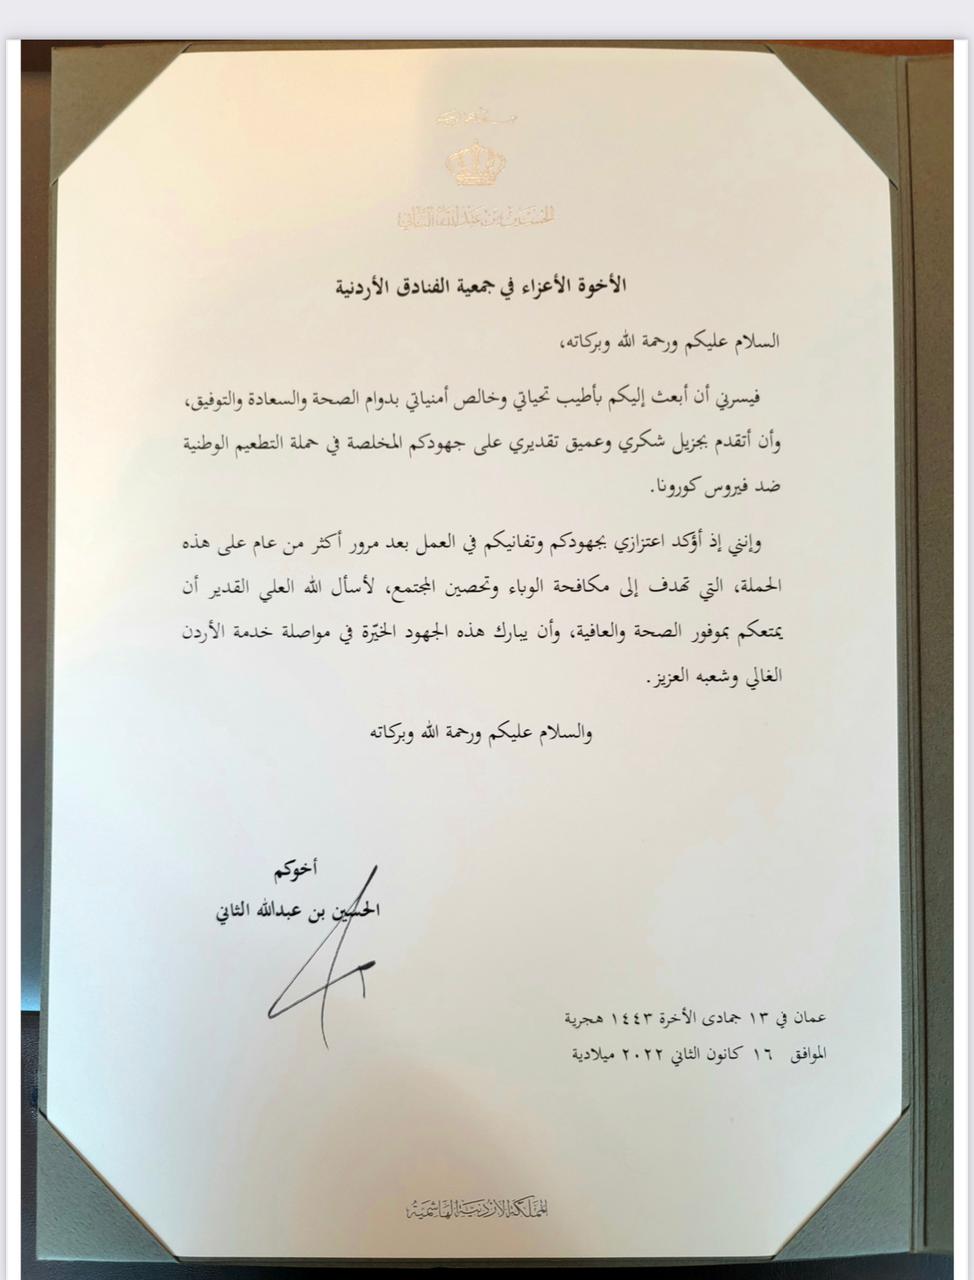 الحسين بن عبدالله الثاني
الأخوة الأعزاء في جمعية الفنادق الأردنية
السلام عليكم ورحمة الله وبركاته،
فيسرني أن أبعث إليكم بأطيب تحياتي وخالص أمنياتي بدوام الصحة والسعادة والتوفيق،
وأن أتقدم بجزيل شكري وعميق تقديري على جهودكم المخلصة في حملة التطعيم الوطنية
ضد فيروس كورونا.
وإنني إذ أؤكد اعتزازي بجهودكم وتفانيكم في العمل بعد مرور أكثر من عام على هذه
الحملة، التي تهدف إلى مكافحة الوباء وتحصين المجتمع، لأسأل الله العلي القدير أن
يمتعكم بموفور الصحة والعافية، وأن يبارك هذه الجهود الخيّرة في مواصلة خدمة الأردن
الغالي وشعبه العزيز.
والسلام عليكم ورحمة الله وبركاته
أخوكم
الحسين بن عبدالله الثاني
عمان في ١٣ جمادى الأخرة ١٤٤٣ هجرية
الموافق ١٦ كانون الثاني ٢٠٢٢ ميلادية
المملكة الأردنية الهاشمية